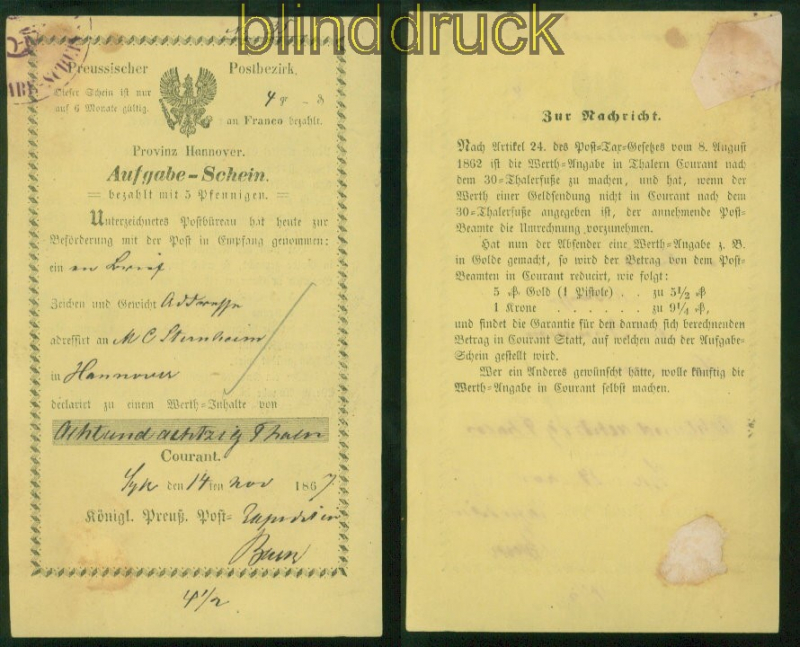 blinddruck
Preussischer Postbezirk.
Dieser Schein ist nur
auf 6 Monate gültig.
4
an Franco bezahlt.
Provinz Hannover.
Aufgabe-Schein.
bezahlt mit 5 Pfennigen.
Unterzeichnetes Postbüreau hat heute zur
Beförderung mit der Post in Empfang genommen:
ein en Brief
Zeichen und Gewicht Addresse
adressirt an M C Sternheim
in Hannover
declarirt zu einem Werth-Inhalte von
Acht und achtzig Thaler
Courant.
Syke den 14ten Nov 1867
Königl. Preuß. Post- Expedition
4 1/2
Zur Nachricht.
Nach Artikel 24. des Post-Tax-Gesetzes vom 8. August
1862 ist die Werth-Angabe in Thalern Courant nach
dem 30-Thalerfuße zu machen, und hat, wenn der
Werth einer Geldsendung nicht in Courant nach dem
30-Thalerfuße angegeben ist, der annehmende Post-
Beamte die Umrechnung vorzunehmen.
Hat nun der Absender eine Werth-Angabe z. B.
in Golde gemacht, so wird der Betrag von dem Post-
Beamten in Courant reducirt, wie folgt:
5 ₰ Gold (1 Pistole) . . zu 5½ ₰
1 Krone . . . . . . zu 9¼ ₰,
und findet die Garantie für den darnach sich berechnenden
Betrag in Courant Statt, auf welchen auch der Aufgabe-
Schein gestellt wird.
Wer ein Anderes gewünscht hätte, wolle künftig die
Werth-Angabe in Courant selbst machen.